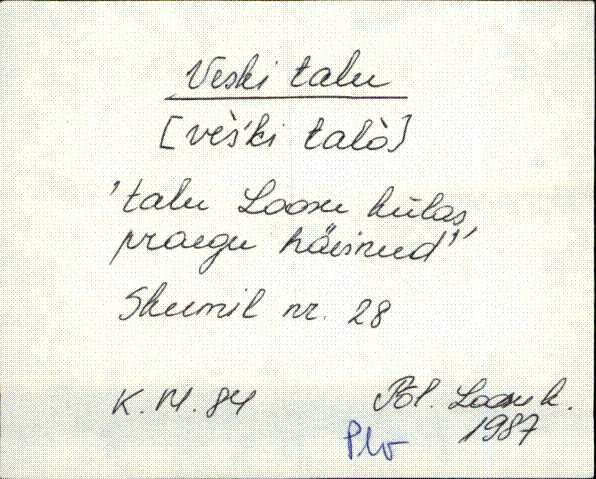 Veski talu
[vèški talò]
'talu Loosu külas,
praegu häinud'
Skeemil nr. 28
K. M. 84
Põl. Loosu k.
1987
Plv